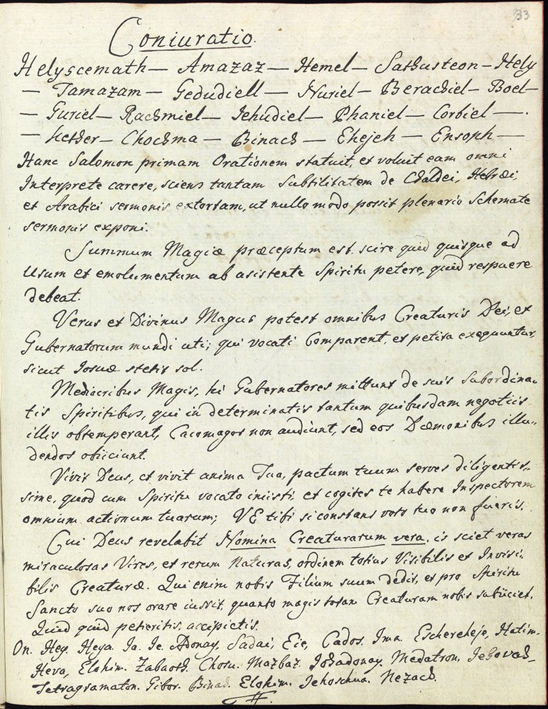 33
Coniuratio.
Helyscemath — Amazaz — Hemel — Sathusteon — Hely
— Tamazam — Gedudiell — Nuriel — Berachiel — Boel —
— Guriel — Rachmiel — Iehudiel — Phaniel — Corbiel —.
— Kether — Chochma — Binach — Ehejeh — Ensoph —
Hanc Salomon primam Orationem statuit et voluit eam omni
Interprete carere, sciens tantam Subtilitatem de Chaldei, Hebrei
et Arabici sermonis extortam, ut nullo modo possit plenario Schemate
sermonis exponi.
Summum Magiæ præceptum est scire quid quisque ad
Usum et emolumentum ab asistente Spiritu petere, quid respuere
debeat.
Verus et Divinus Magus potest omnibus Creaturis Dei, et
Gubernatorum mundi uti; qui vocati Comparent, et petita exequuntur,
sicut Iosuæ stetit sol.
Mediocribus Magis, hi Gubernatores mittunt de suis Subordina
tis Spiritibus, qui in determinatis tantum quibusdam negotiis
illis obtemperant, Cacomagos non audiunt, sed eos Dæmonibus illu-
dendos obiiciunt.
Vivit Deus, et vivit anima Tua, pactum tuum serves diligentis-
sime, quod cum Spiritu vocato inisti; et cogites te habere Inspectorem
omnium actionum tuarum; VE tibi si constans voto tuo non fueris.
Cui Deus revelabit Nomina Creaturarum vera, is sciet veras
miraculosas Vires, et rerum Naturas, ordinem totius Visibilis et Invisi
bilis Creaturæ. Qui enim nobis Filium suum dedit, et pro Spiritu
Sancto suo nos orare iussit, quanto magis totam Creaturam nobis subiiciet.
Quid quid petieritis, accipietis.
On. Hey. Heya. Ia. Ie. Adonay. Sadai, Eie, Cados. Ima. Eschereheje, Hatim.
Heva, Elohim. Zabaoth. Chosu. Mazbaz. Johadonay. Medatron. Jehovah,
Tetragramaton. Gibor. Binach. Elohim. Jehoschua. Nezach.